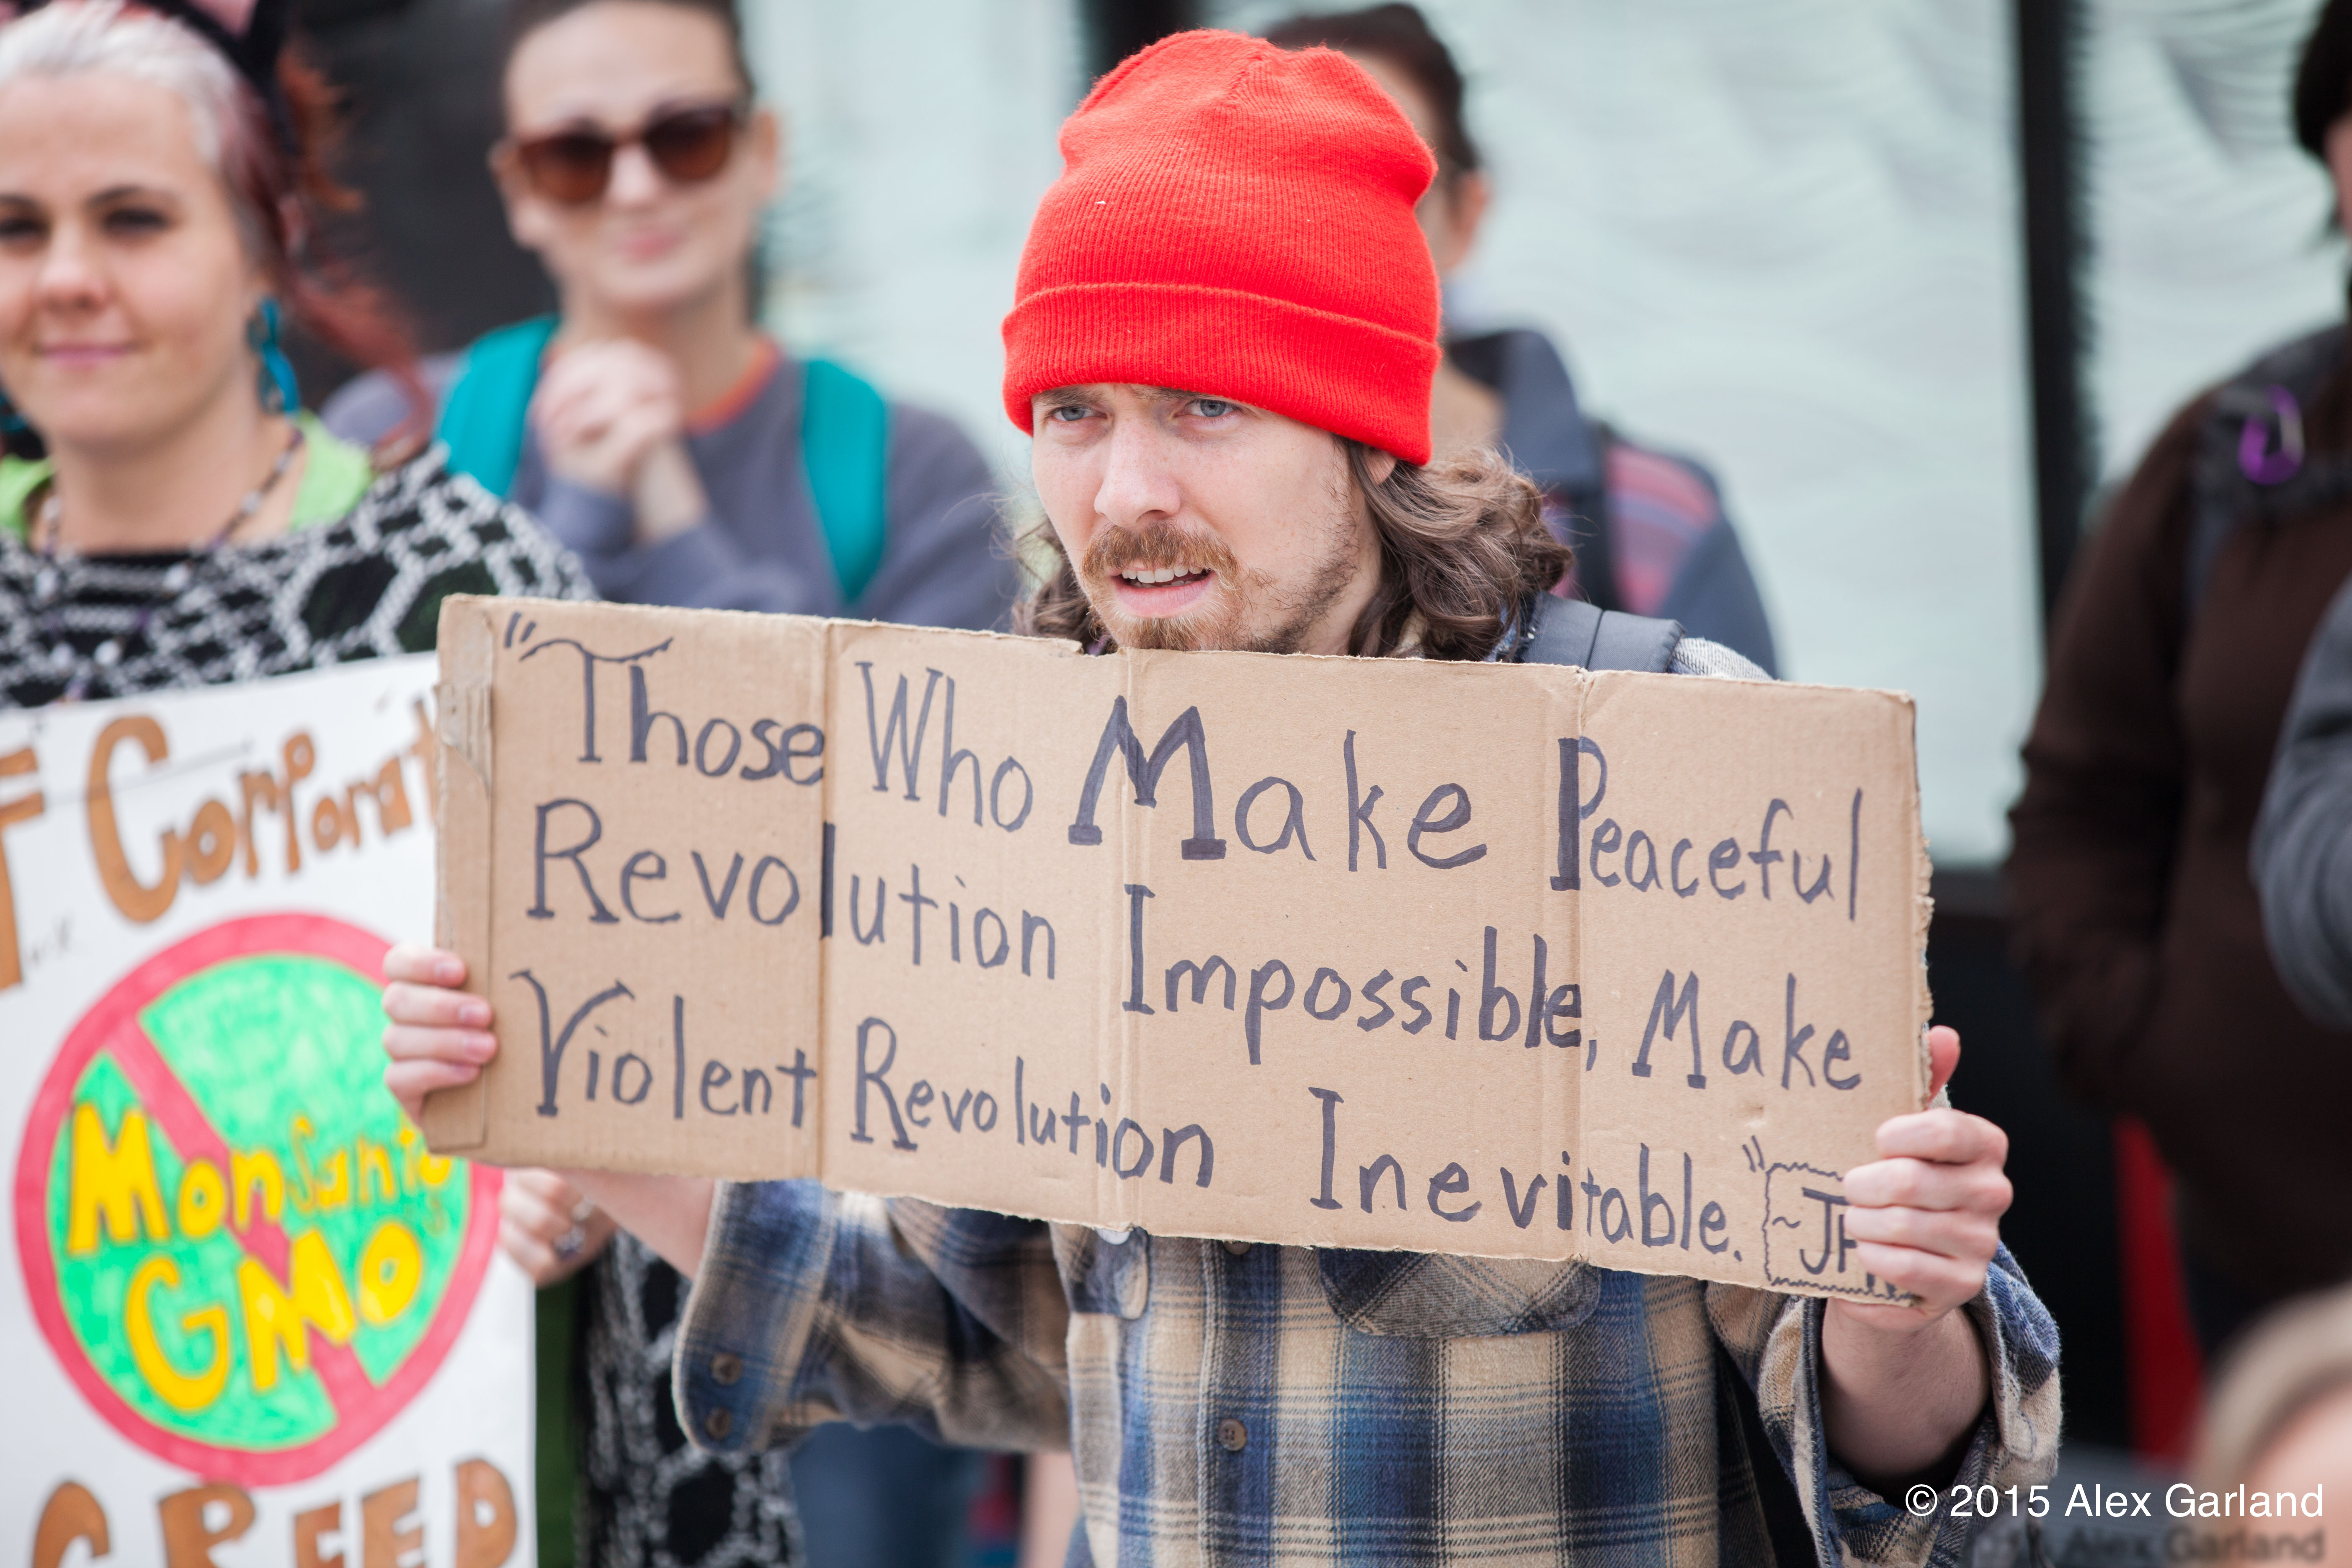 "Those Who Make Peaceful
Revolution Impossible, Make
Violent Revolution Inevitable."
~JF
Corporat
Monsanto's
GMO
GREED
© 2015 Alex Garland
Alex Garland